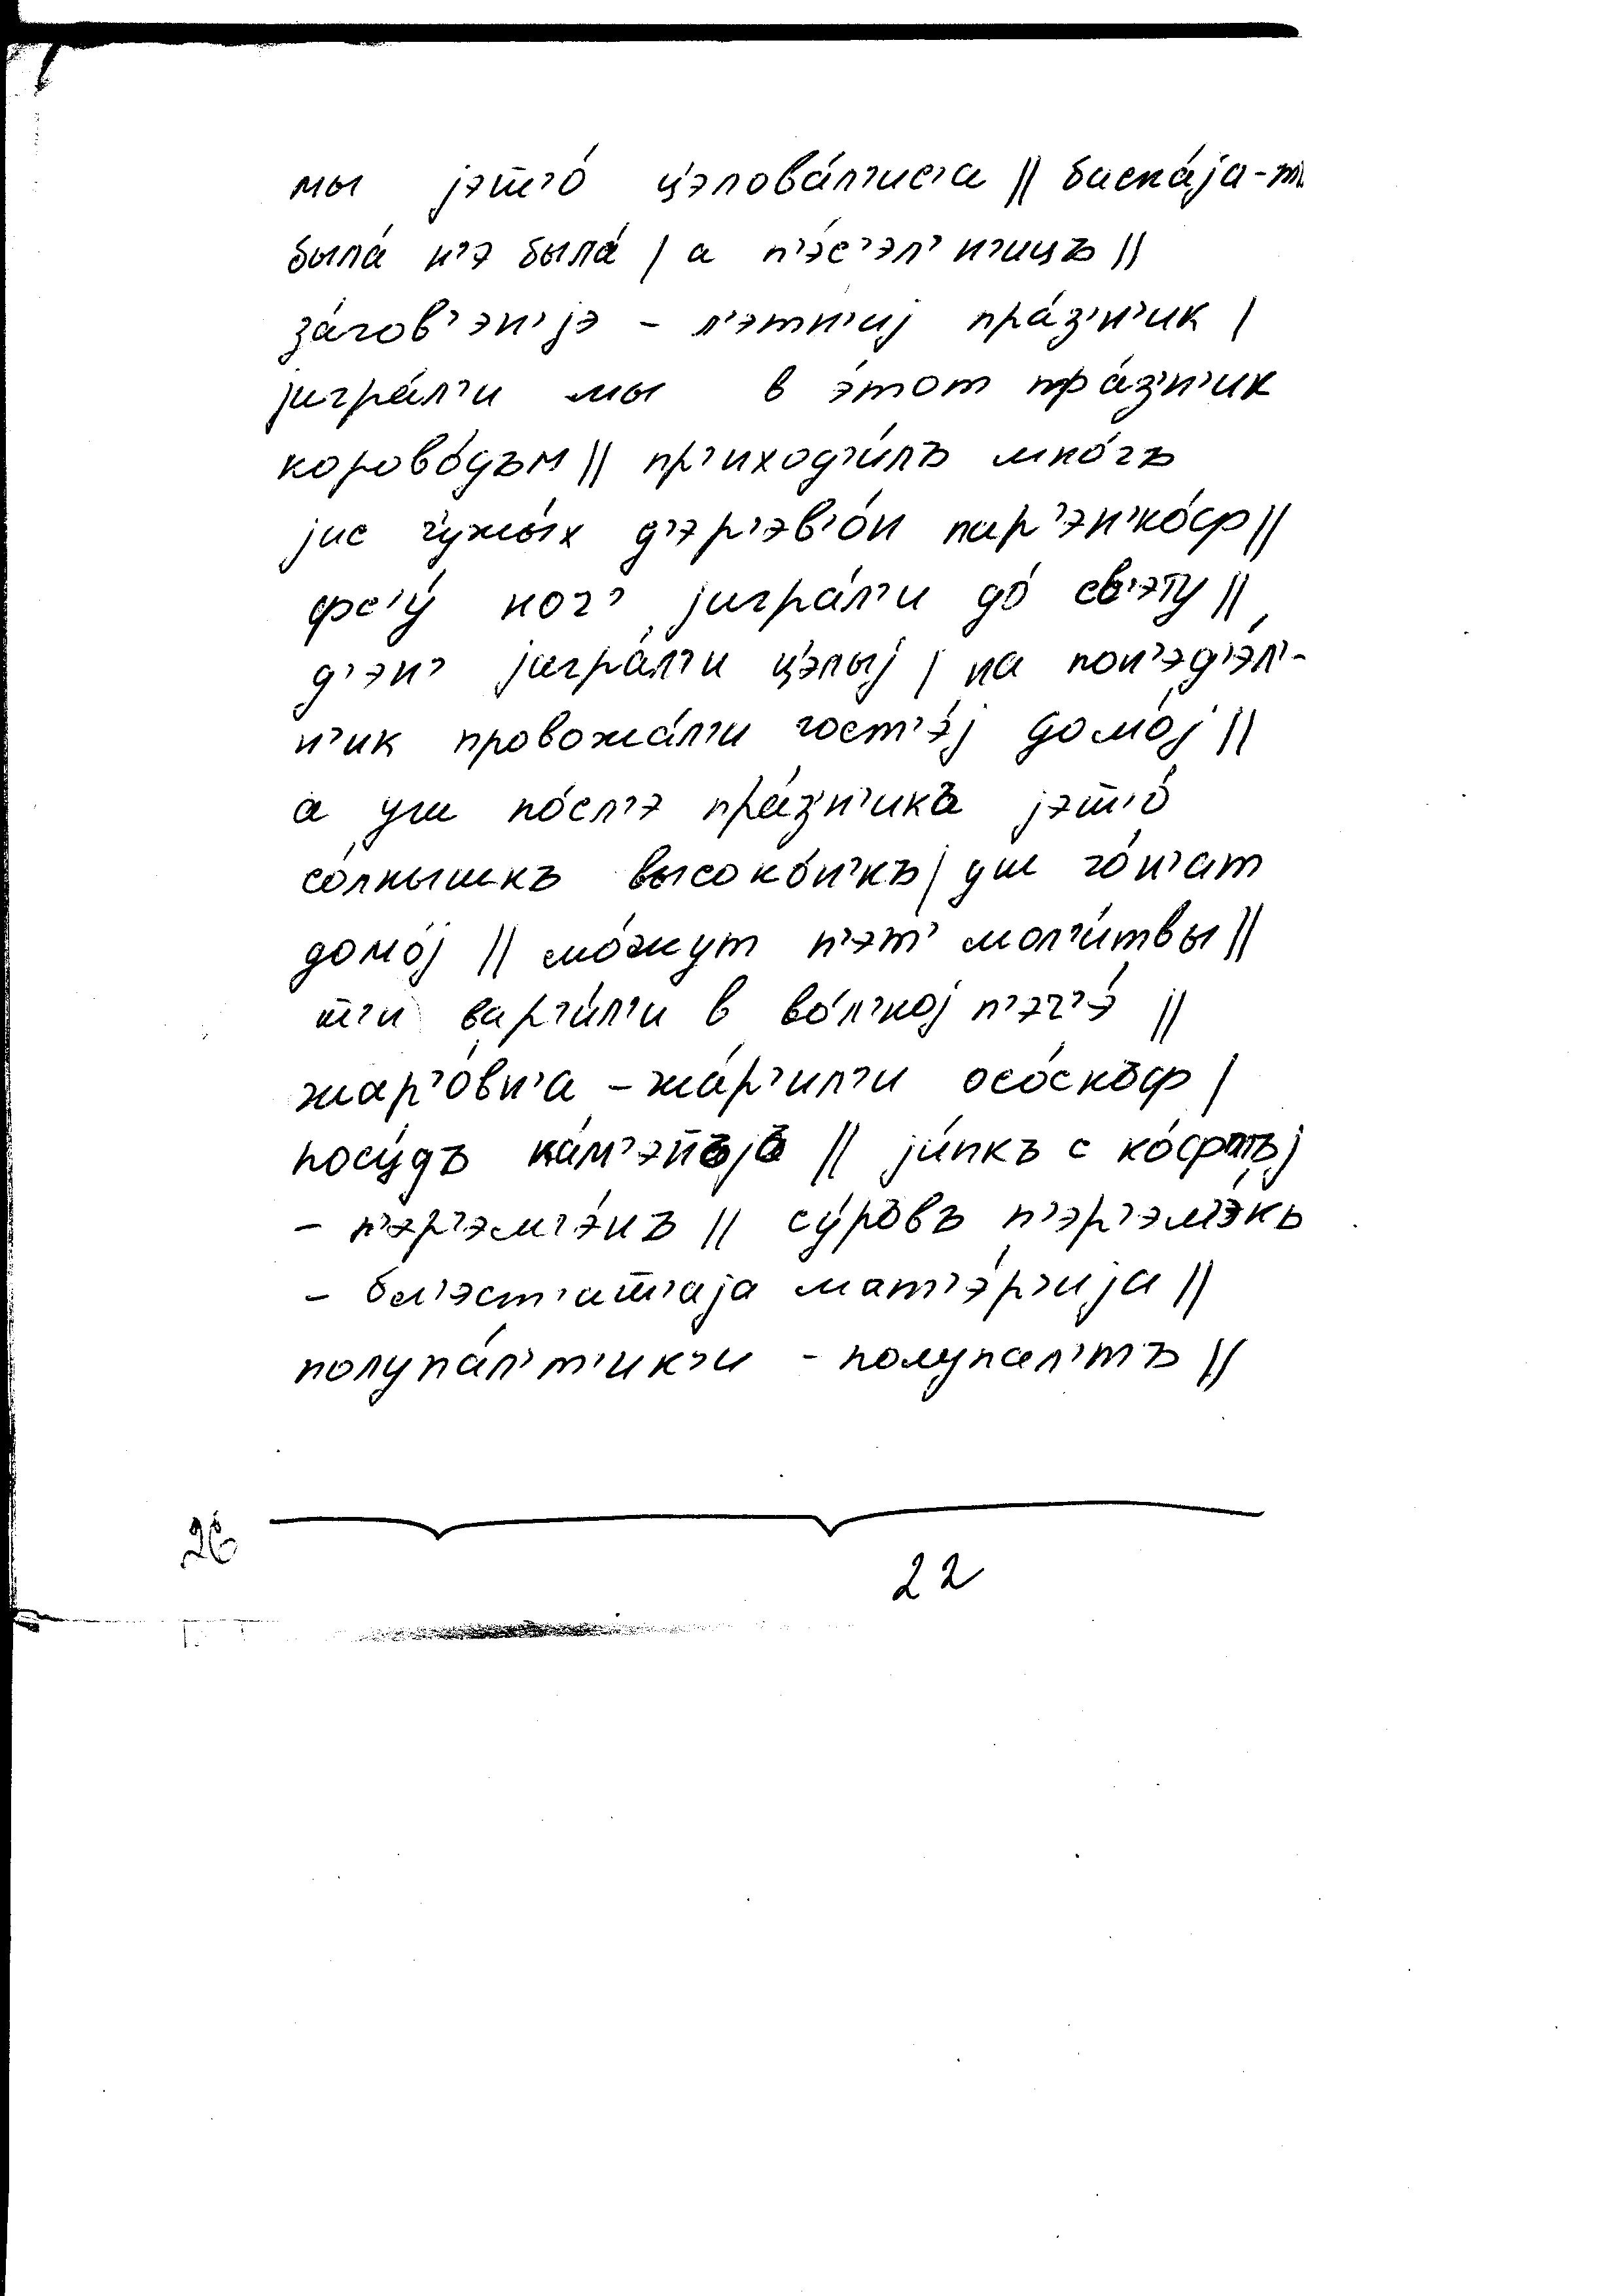 мы јэш'о́ цэлова́л'ис'а || баска́ја-т
была́ н'э была́ | а п'э́с'эл'н'ицъ ||
за́гов'эн'јэ – л'э́тн'иј пра́з'н'ик |
јигра́л'и мы в э́тот пра́з'н'ик
корово́дъм || пр'иход'и́лъ мно́гъ
јис чужы́х д'эр'эв'о́н пар'эн'ко́ф ||
фс'у́ ноч' јигра́л'и до́ св'эту ||
д'эн' јигра́л'и цэ́лыј | на пон'эд'э́л'-
н'ик провожа́л'и гост'э́ј домо́ј ||
а уш по́сл'э пра́з'н'икъ јэш'о́
со́лнышкъ высоко́н'къ | уш го́н'ат
домо́ј || мо́жут п'эт' мол'и́твы ||
ш'и вар'и́л'и в во́л'ној п'эч'э́ ||
жар'о́вн'а – жа́р'ил'и осо́скъф |
посу́дъ ка́м'энъјъ || ју́пкъ с ко́фтъј
– п'эр'эм'э́нъ || су́ръвъ п'эр'эм'э́нъ
– бл'эст'а́ш'аја мат'э́р'ија ||
полупа́л'т'ик'и – полупал'тъ ||
26
22